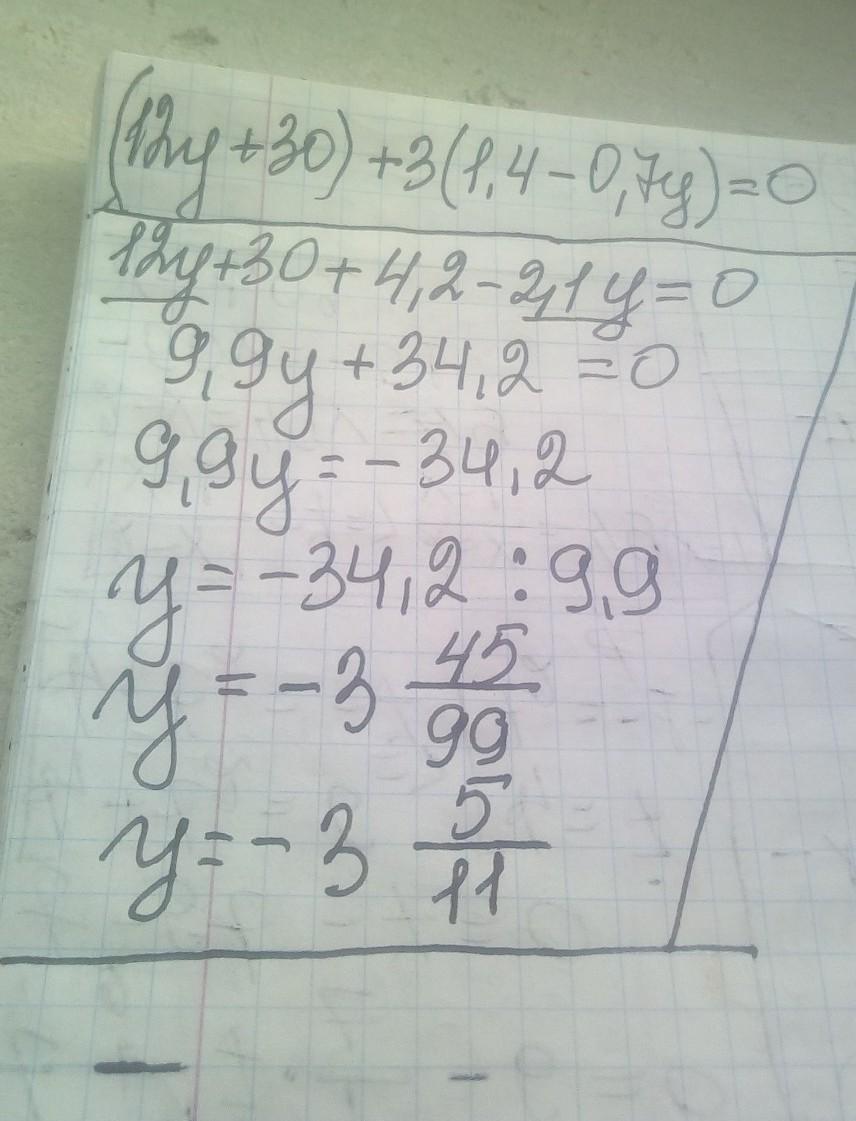 (12y+30)+3(1,4-0,7y)=0
12y+30+4,2-2,1y=0
9,9y+34,2=0
9,9y=-34,2
y=-34,2:9,9
y=-3 45/99
y=-3 5/11